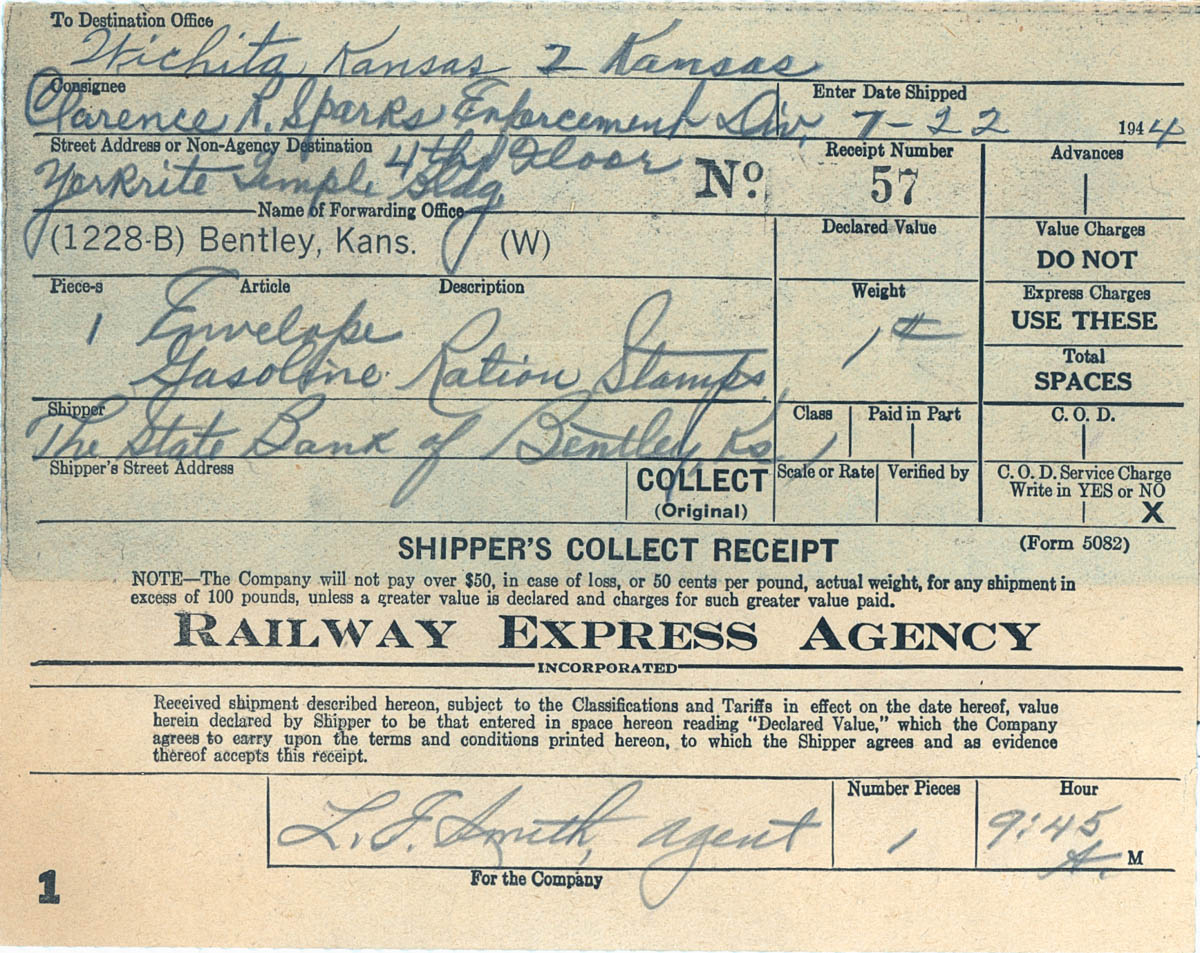 To Destination Office
Wichita, Kansas 2 Kansas
Consignee
Enter Date Shipped
Clarence R. Sparks Enforcement Div. 7-22 1944
Street Address or Non-Agency Destination
4th Floor
Yorkrite Temple Bldg.
No. Receipt Number
57
Advances
Name of Forwarding Office
(1228-B) Bentley, Kans. (W)
Declared Value
Value Charges
DO NOT
Piece-s Article Description
Weight
Express Charges
USE THESE
1 Envelope
1 #
Gasoline Ration Stamps
Total
SPACES
Shipper
Class Paid in Part
C. O. D.
The State Bank of Bentley, Ks. 1
Shipper's Street Address
COLLECT
(Original)
Scale or Rate Verified by
C. O. D. Service Charge
Write in YES or NO
X
SHIPPER'S COLLECT RECEIPT
(Form 5082)
NOTE—The Company will not pay over $50, in case of loss, or 50 cents per pound, actual weight, for any shipment in
excess of 100 pounds, unless a greater value is declared and charges for such greater value paid.
RAILWAY EXPRESS AGENCY
INCORPORATED
Received shipment described hereon, subject to the Classifications and Tariffs in effect on the date hereof, value
herein declared by Shipper to be that entered in space hereon reading "Declared Value," which the Company
agrees to carry upon the terms and conditions printed hereon, to which the Shipper agrees and as evidence
thereof accepts this receipt.
Number Pieces
Hour
L. F. Smith, agent 1 9:45
A. M
For the Company
1